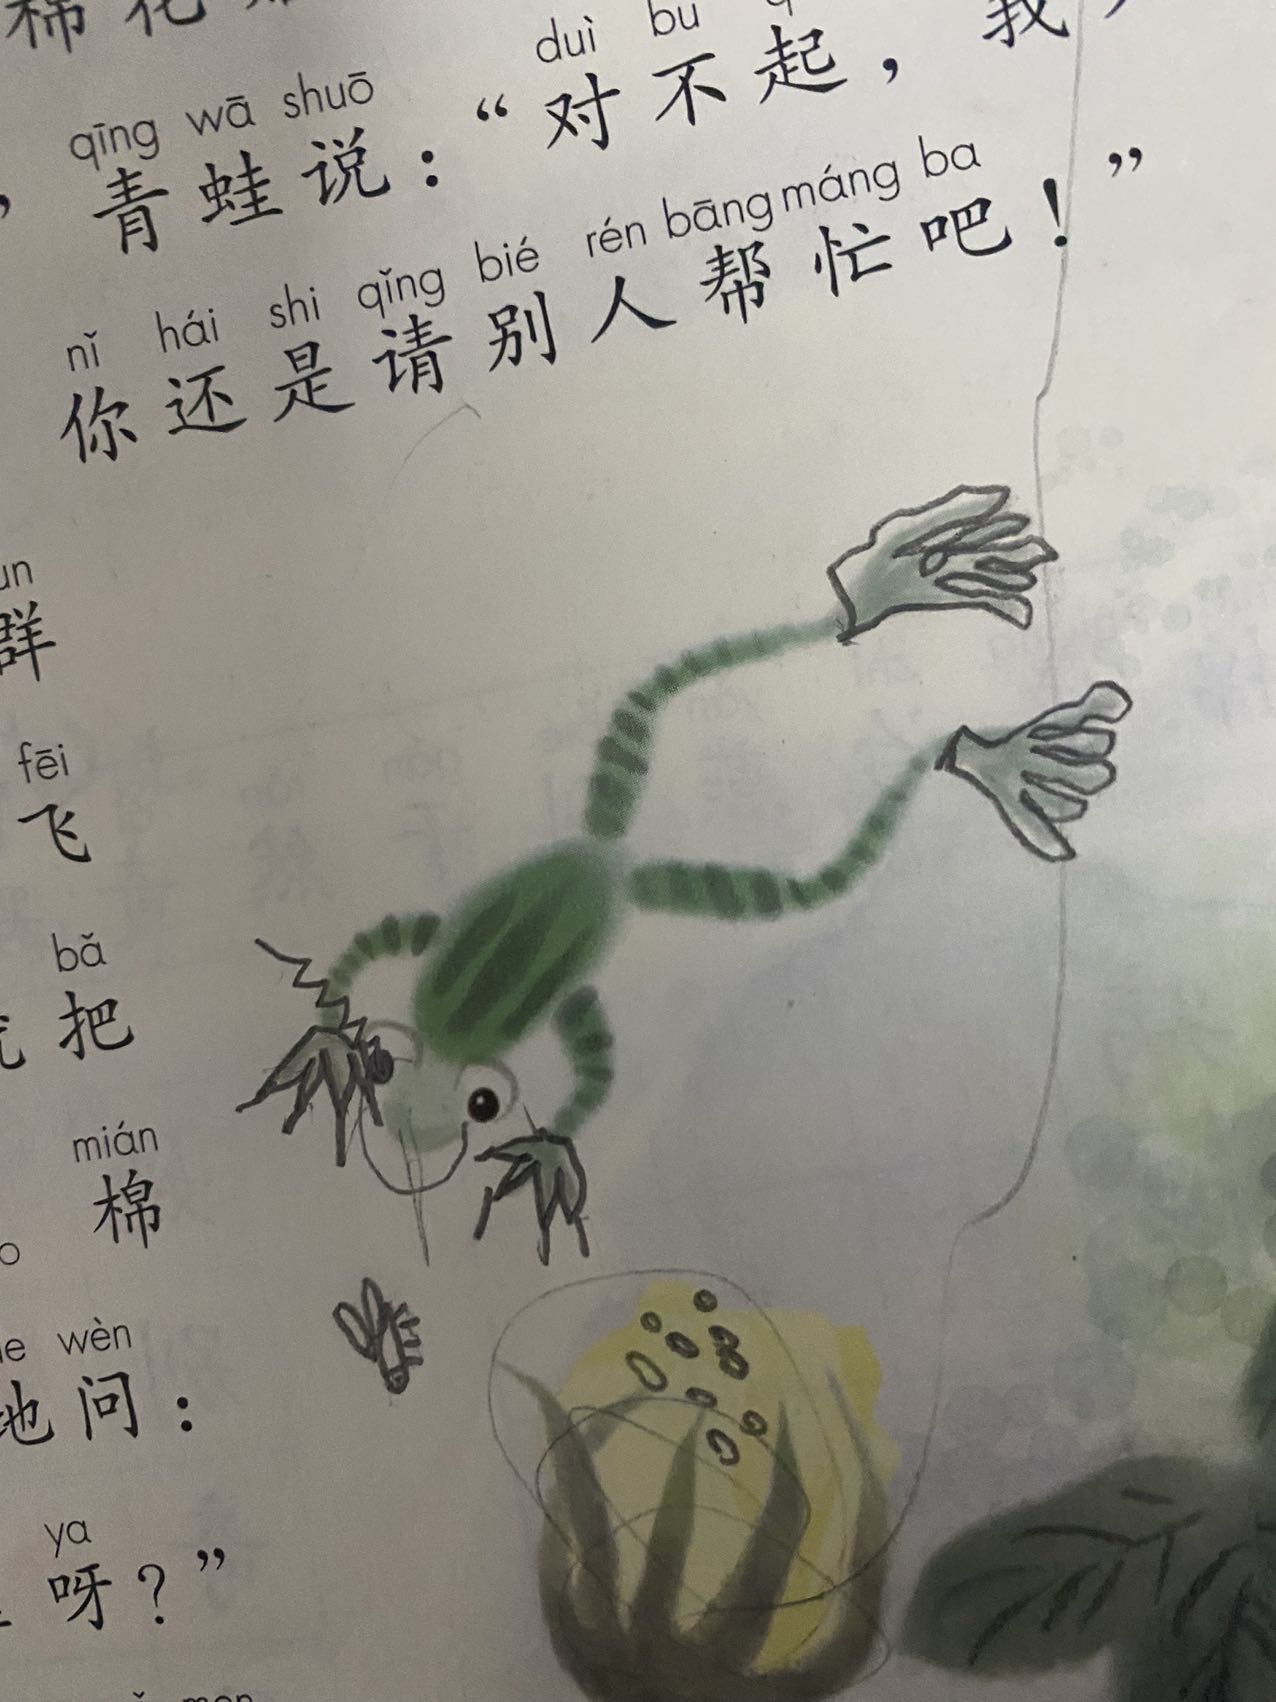 棉花
duì bu
青蛙说：“对不起，我
qīng wā shuō
nǐ hái shi qǐng bié rén bāng máng ba
你还是请别人帮忙吧！”
群
fēi
飞
bǎ
把
mián
棉
wèn
地问：
ya
呀？”